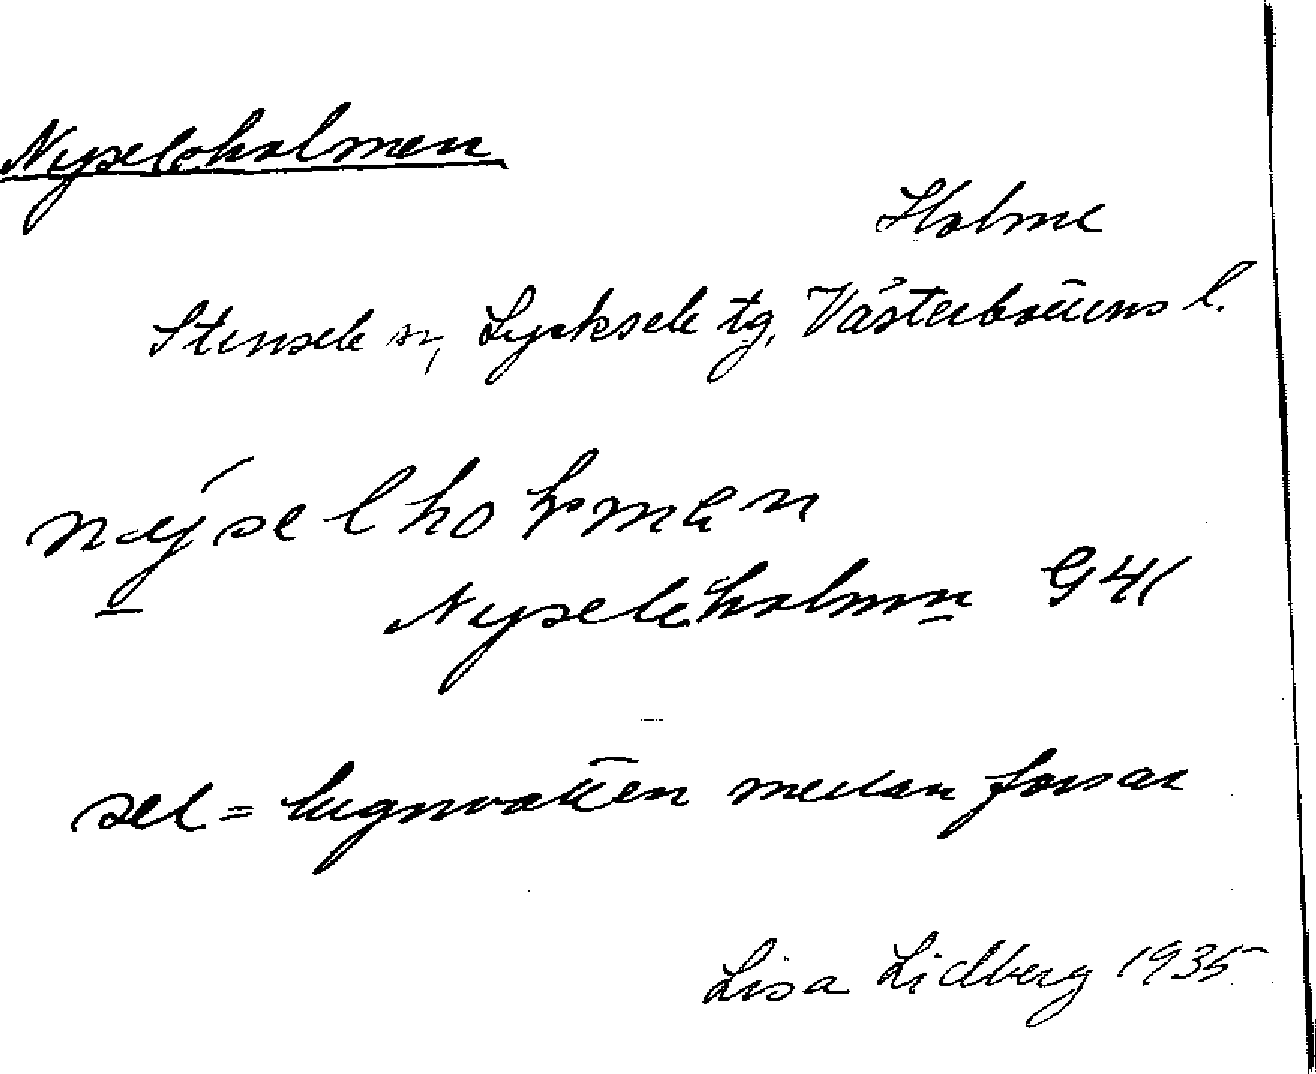 Nyseleholmen
Holme
Stensele sn, Lycksele tg, Västerbottens l.
nýselholmen
Nyseleholmen G41
sel = lugnvatten mellan forsar
Lisa Lidberg 1935